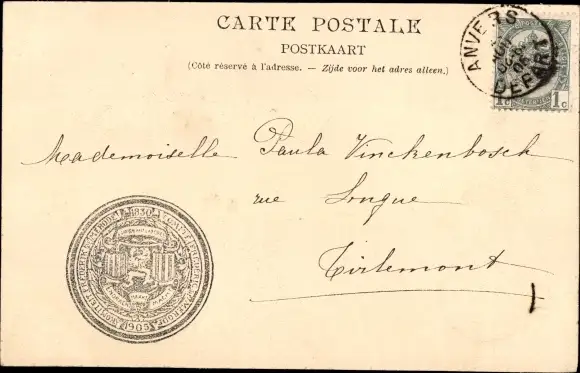 CARTE POSTALE
POSTKAART
(Côté réservé à l'adresse. — Zijde voor het adres alleen.)
ANVERS
DEPART
1c 1c
Mademoiselle Paula Vinckenbosch
rue Longue
Tirlemont
1830
1905